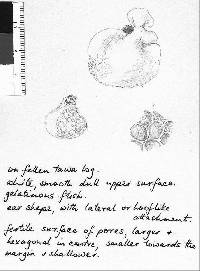 on fallen tawa log.
white, smooth dull upper surface.
gelatinous flesh.
ear shape, with lateral or hooflike
attachment.
fertile surface of pores, larger +
hexagonal in centre, smaller towards the
margin + shallower.